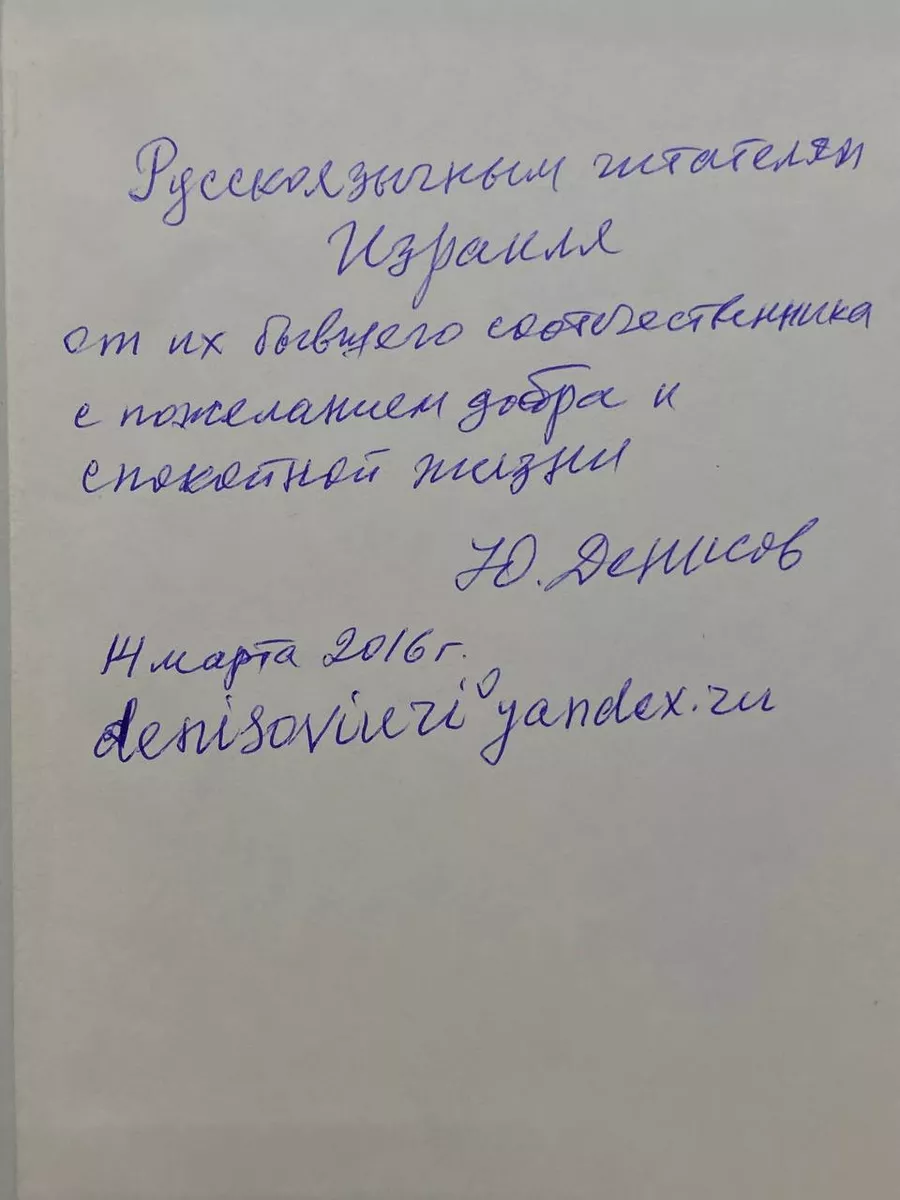 Русскоязычным читателям
Израиля
от их бывщего соотечественника
с пожеланием добра и
спокойной жизни
Ю. Денисов
14 марта 2016 г.
denisoviuri@yandex.ru